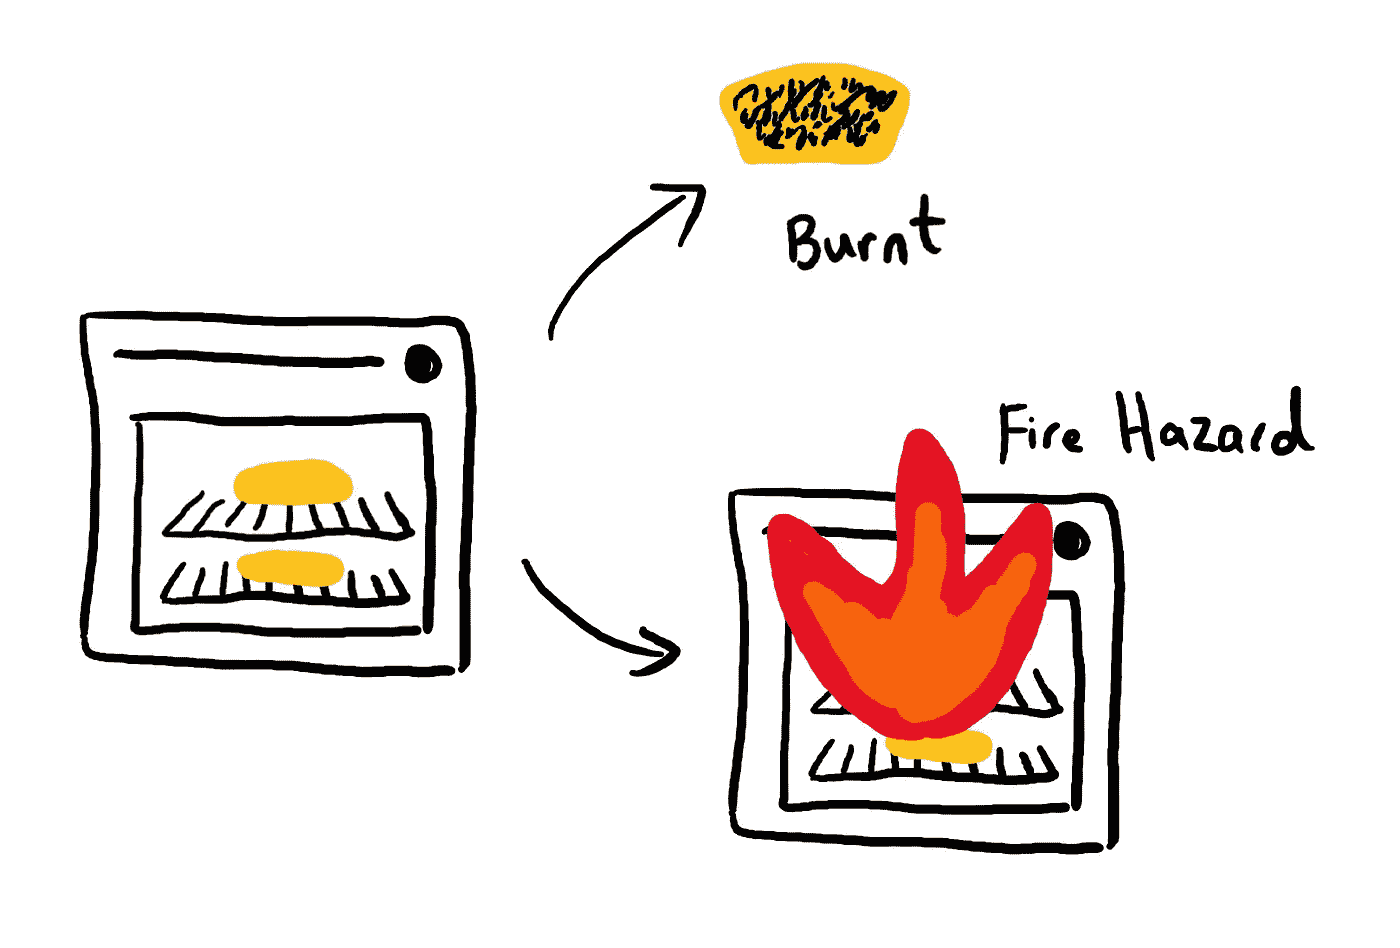 Burnt
Fire Hazard